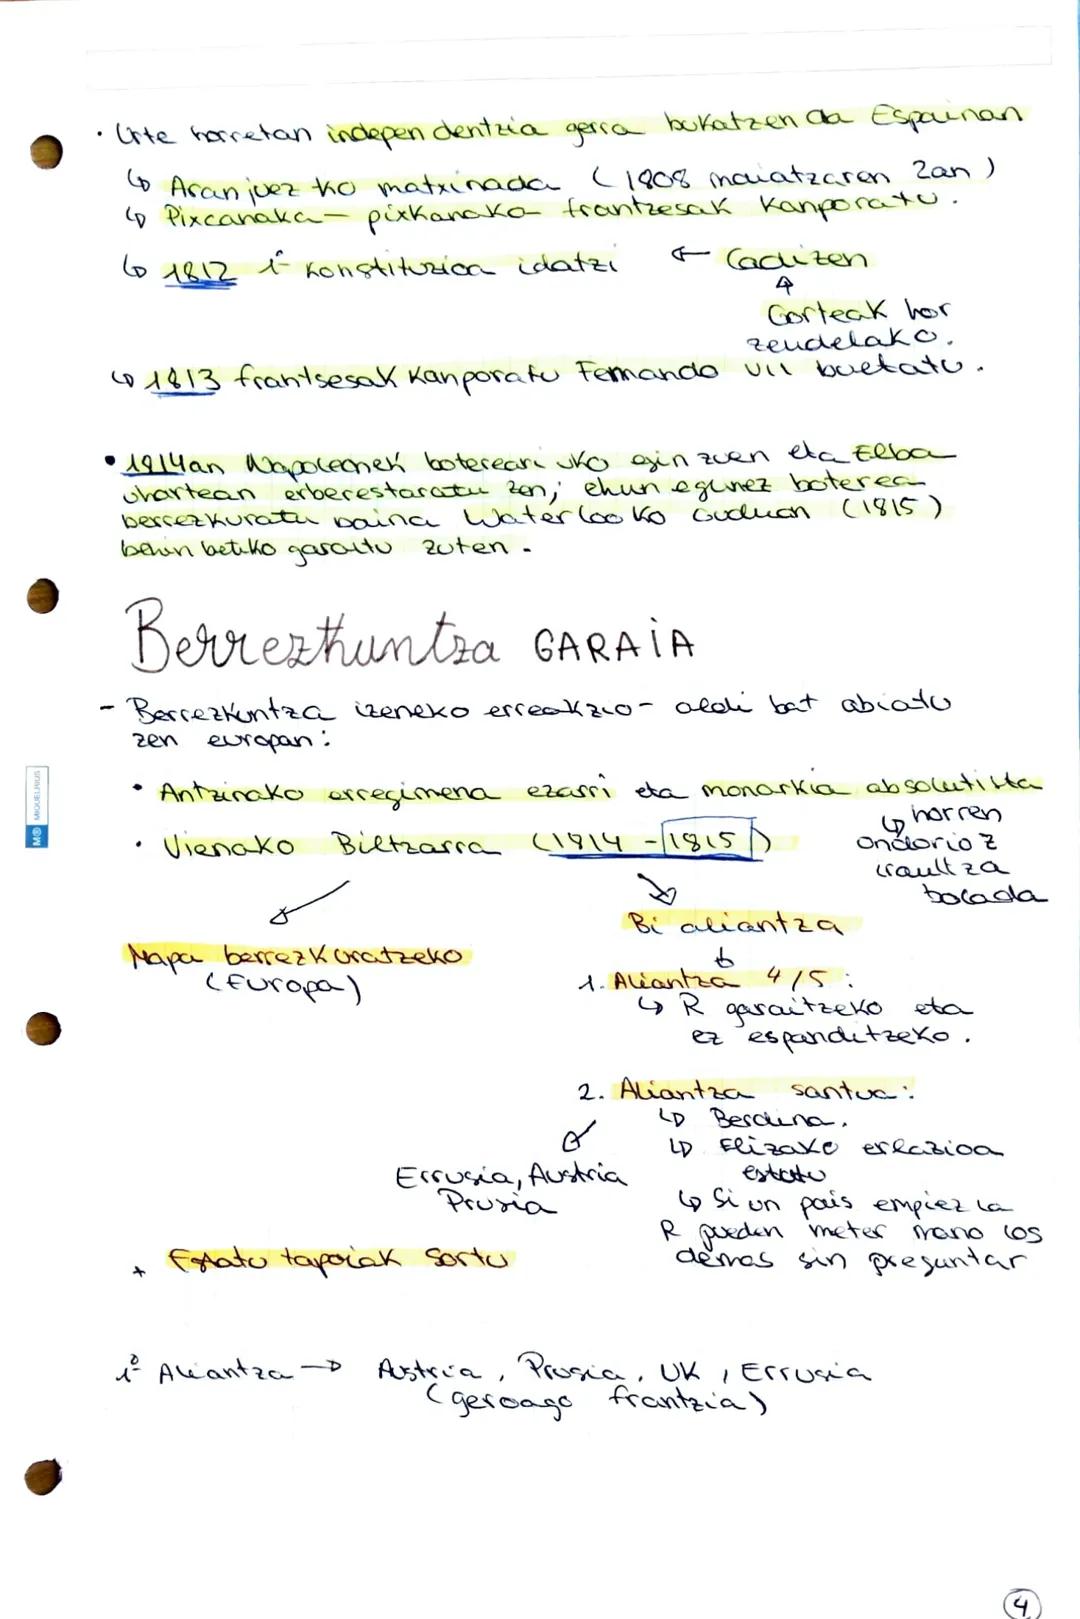 · Urte horretan independentzia gerra bukatzen da Espainan
↳ Aranjuez ko matxinada (1808 maiatzaren 2an)
↳ Pixcanaka- pixkanako frantzesak kanporatu.
↳ 1812 1º konstituzioa idatzi ← Cadizen
↑
Gorteak hor
zeudelako.
↳ 1813 frantsesak kanporatu Fernando VII bueltatu.
• 1814an Napoleonek botereari uko egin zuen eta Elba
uhartean erberestaratu zen; ehun egunez boterea
berrezkuratu baina Waterloo ko Guduan (1815)
behin betiko garaitu zuten.
Berrezkuntza GARAiA
- Berrezkuntza izeneko erreakzio- aldi bat abiatu
zen europan:
• Antzinako erregimena ezarri eta monarkia absolutista
↳ horren
ondorioz
iraultza
bolada
• Vienako Biltzarra (1814 - 1815)
Mapa berrezkuratzeko
(Europa)
Bi aliantza
↓
1. Aliantza 4/5:
↳ R garaitzeko eta
ez espanditzeko.
2. Aliantza santua:
↳ Berdina.
↳ Elizako erlazioa
estatu
Errusia, Austria
Prusia
↳ Si un país empieza la
R pueden meter mano los
demas sin preguntar
+ Estatu tapoiak sortu
1º Aliantza → Austria, Prusia, UK, Errusia
(geroago frantzia)
MIQUELRIUS
4